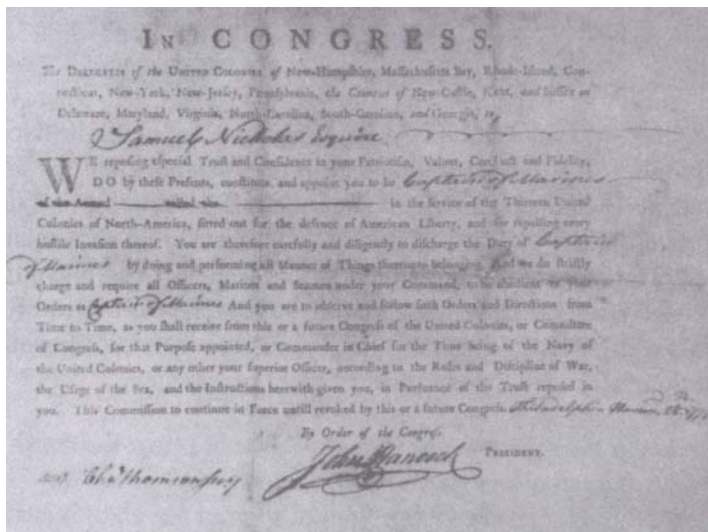 IN CONGRESS.
The DELEGATES of the UNITED COLONIES of New-Hampshire, Massachusetts Bay, Rhode-Island, Con-
necticut, New-York, New-Jersey, Pennsylvania, the Counties of New-Castle, Kent, and Sussex on
Delaware, Maryland, Virginia, North-Carolina, South-Carolina, and Georgia, to
Samuel Nicholas Esquire
WE reposing especial Trust and Confidence in your Patriotism, Valour, Conduct and Fidelity,
DO by these Presents, constitute and appoint you to be Captain of Marines
of the Armed called the in the service of the Thirteen United
Colonies of North-America, fitted out for the defence of American Liberty, and for repelling every
hostile Invasion thereof. You are therefore carefully and diligently to discharge the Duty of Captain
of Marines by doing and performing all Manner of Things thereunto belonging. And we do strictly
charge and require all Officers, Marines and Seamen under your Command, to be obedient to your
Orders as Captain of Marines And you are to observe and follow such Orders and Directions from
Time to Time, as you shall receive from this or a future Congress of the United Colonies, or Committee
of Congress, for that Purpose appointed, or Commander in Chief for the Time being of the Navy of
the United Colonies, or any other your superior Officer, according to the Rules and Discipline of War,
the Usage of the Sea, and the Instructions herewith given you, in Pursuance of the Trust reposed in
you. This Commission to continue in Force untill revoked by this or a future Congress. Philadelphia
By Order of the Congress
John Hancock PRESIDENT.
Attest Cha Thomson secy